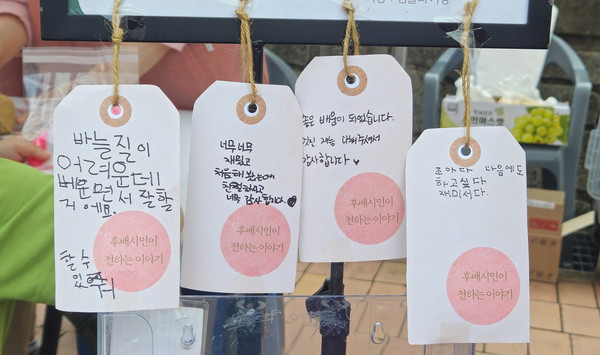 바늘질이
어려운데!
베우면서 잘할
거에요.
할수
있쮜
후배시민이
전하는 이야기
너무너무
재밌고
처음해 봤는데
친절하시고
너무 감사합니다.
후배시민이
전하는 이야기
좋은 배움이 되었습니다.
멋진 재능 나눠주셔서
감사합니다 ♥
후배시민이
전하는 이야기
조아다 다음에도
하고십다
재미서다.
후배시민이
전하는 이야기